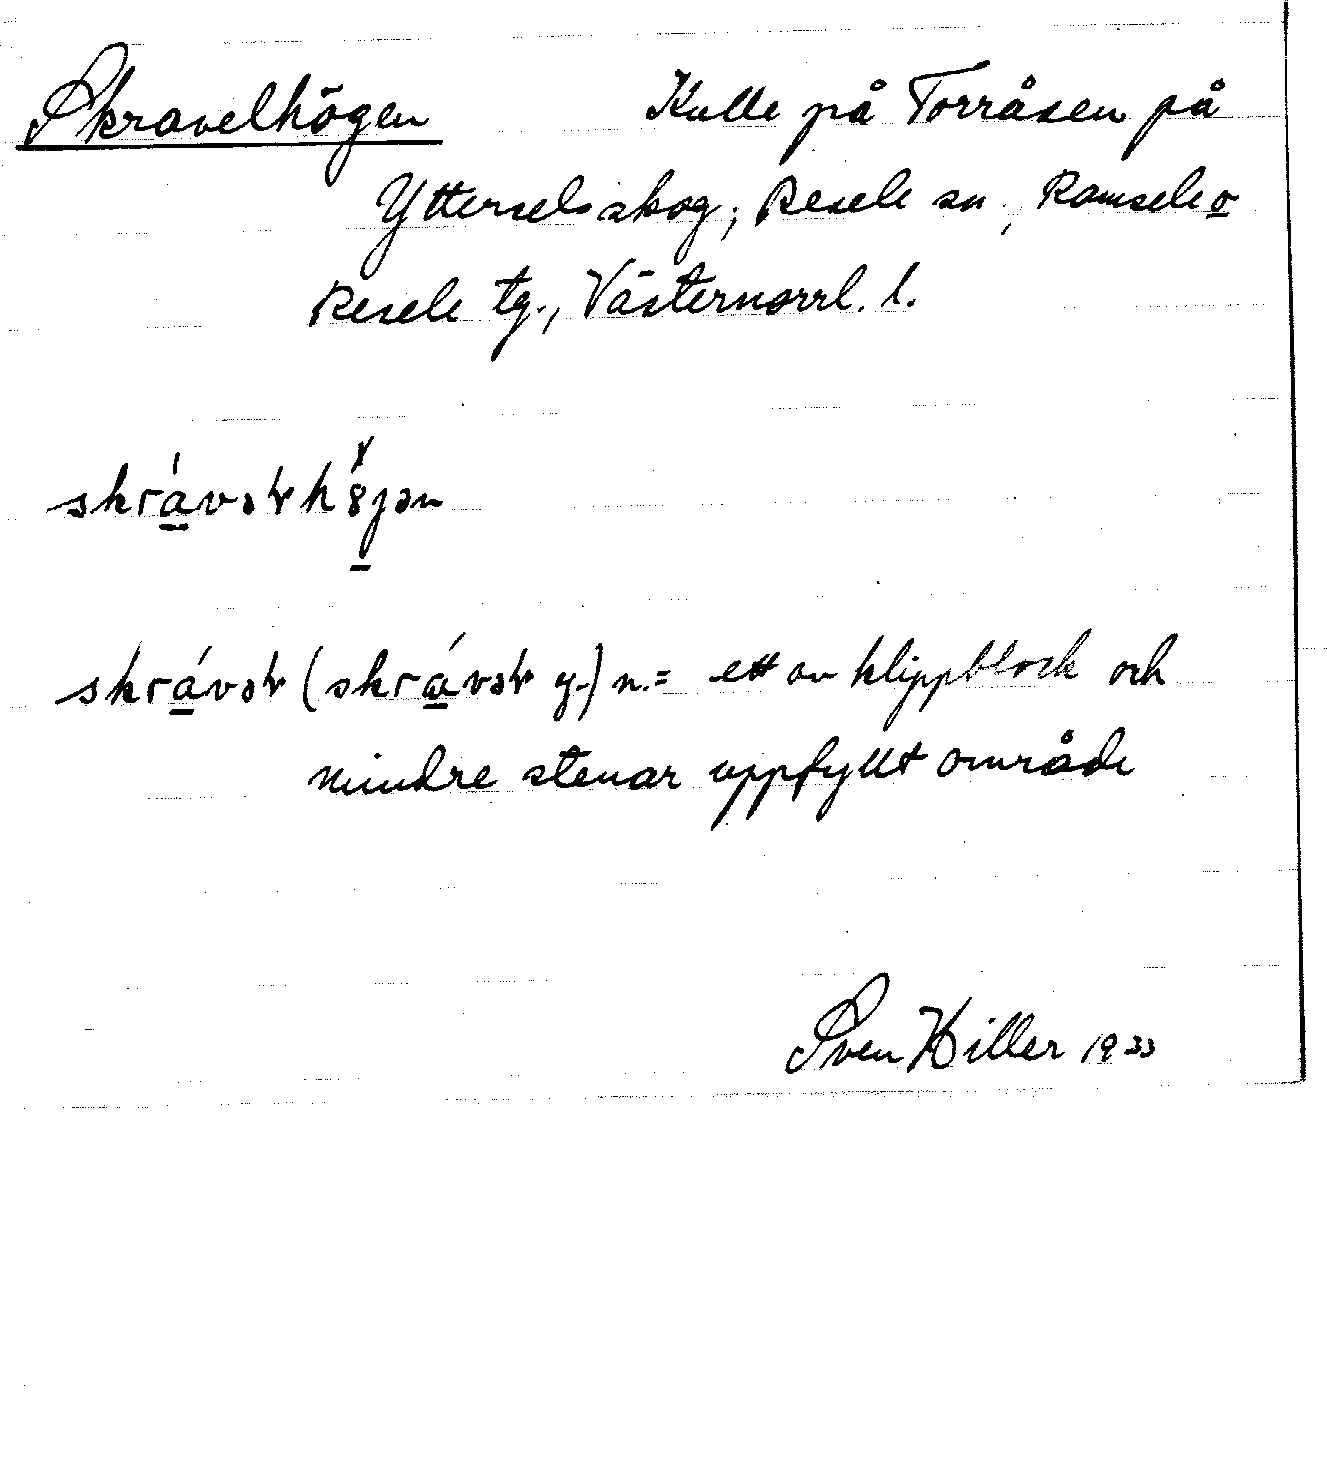 Skravelhögen Kulle på Torråsen på
Ytterselsskog, Resele sn, Ramsele o
Resele tg., Västernorrl. l.
skrávəɫhöjən
skrávəɫ (skrávəɫ y.) n. = ett av klippblock och
mindre stenar uppfyllt område
Sven Hiller 1933